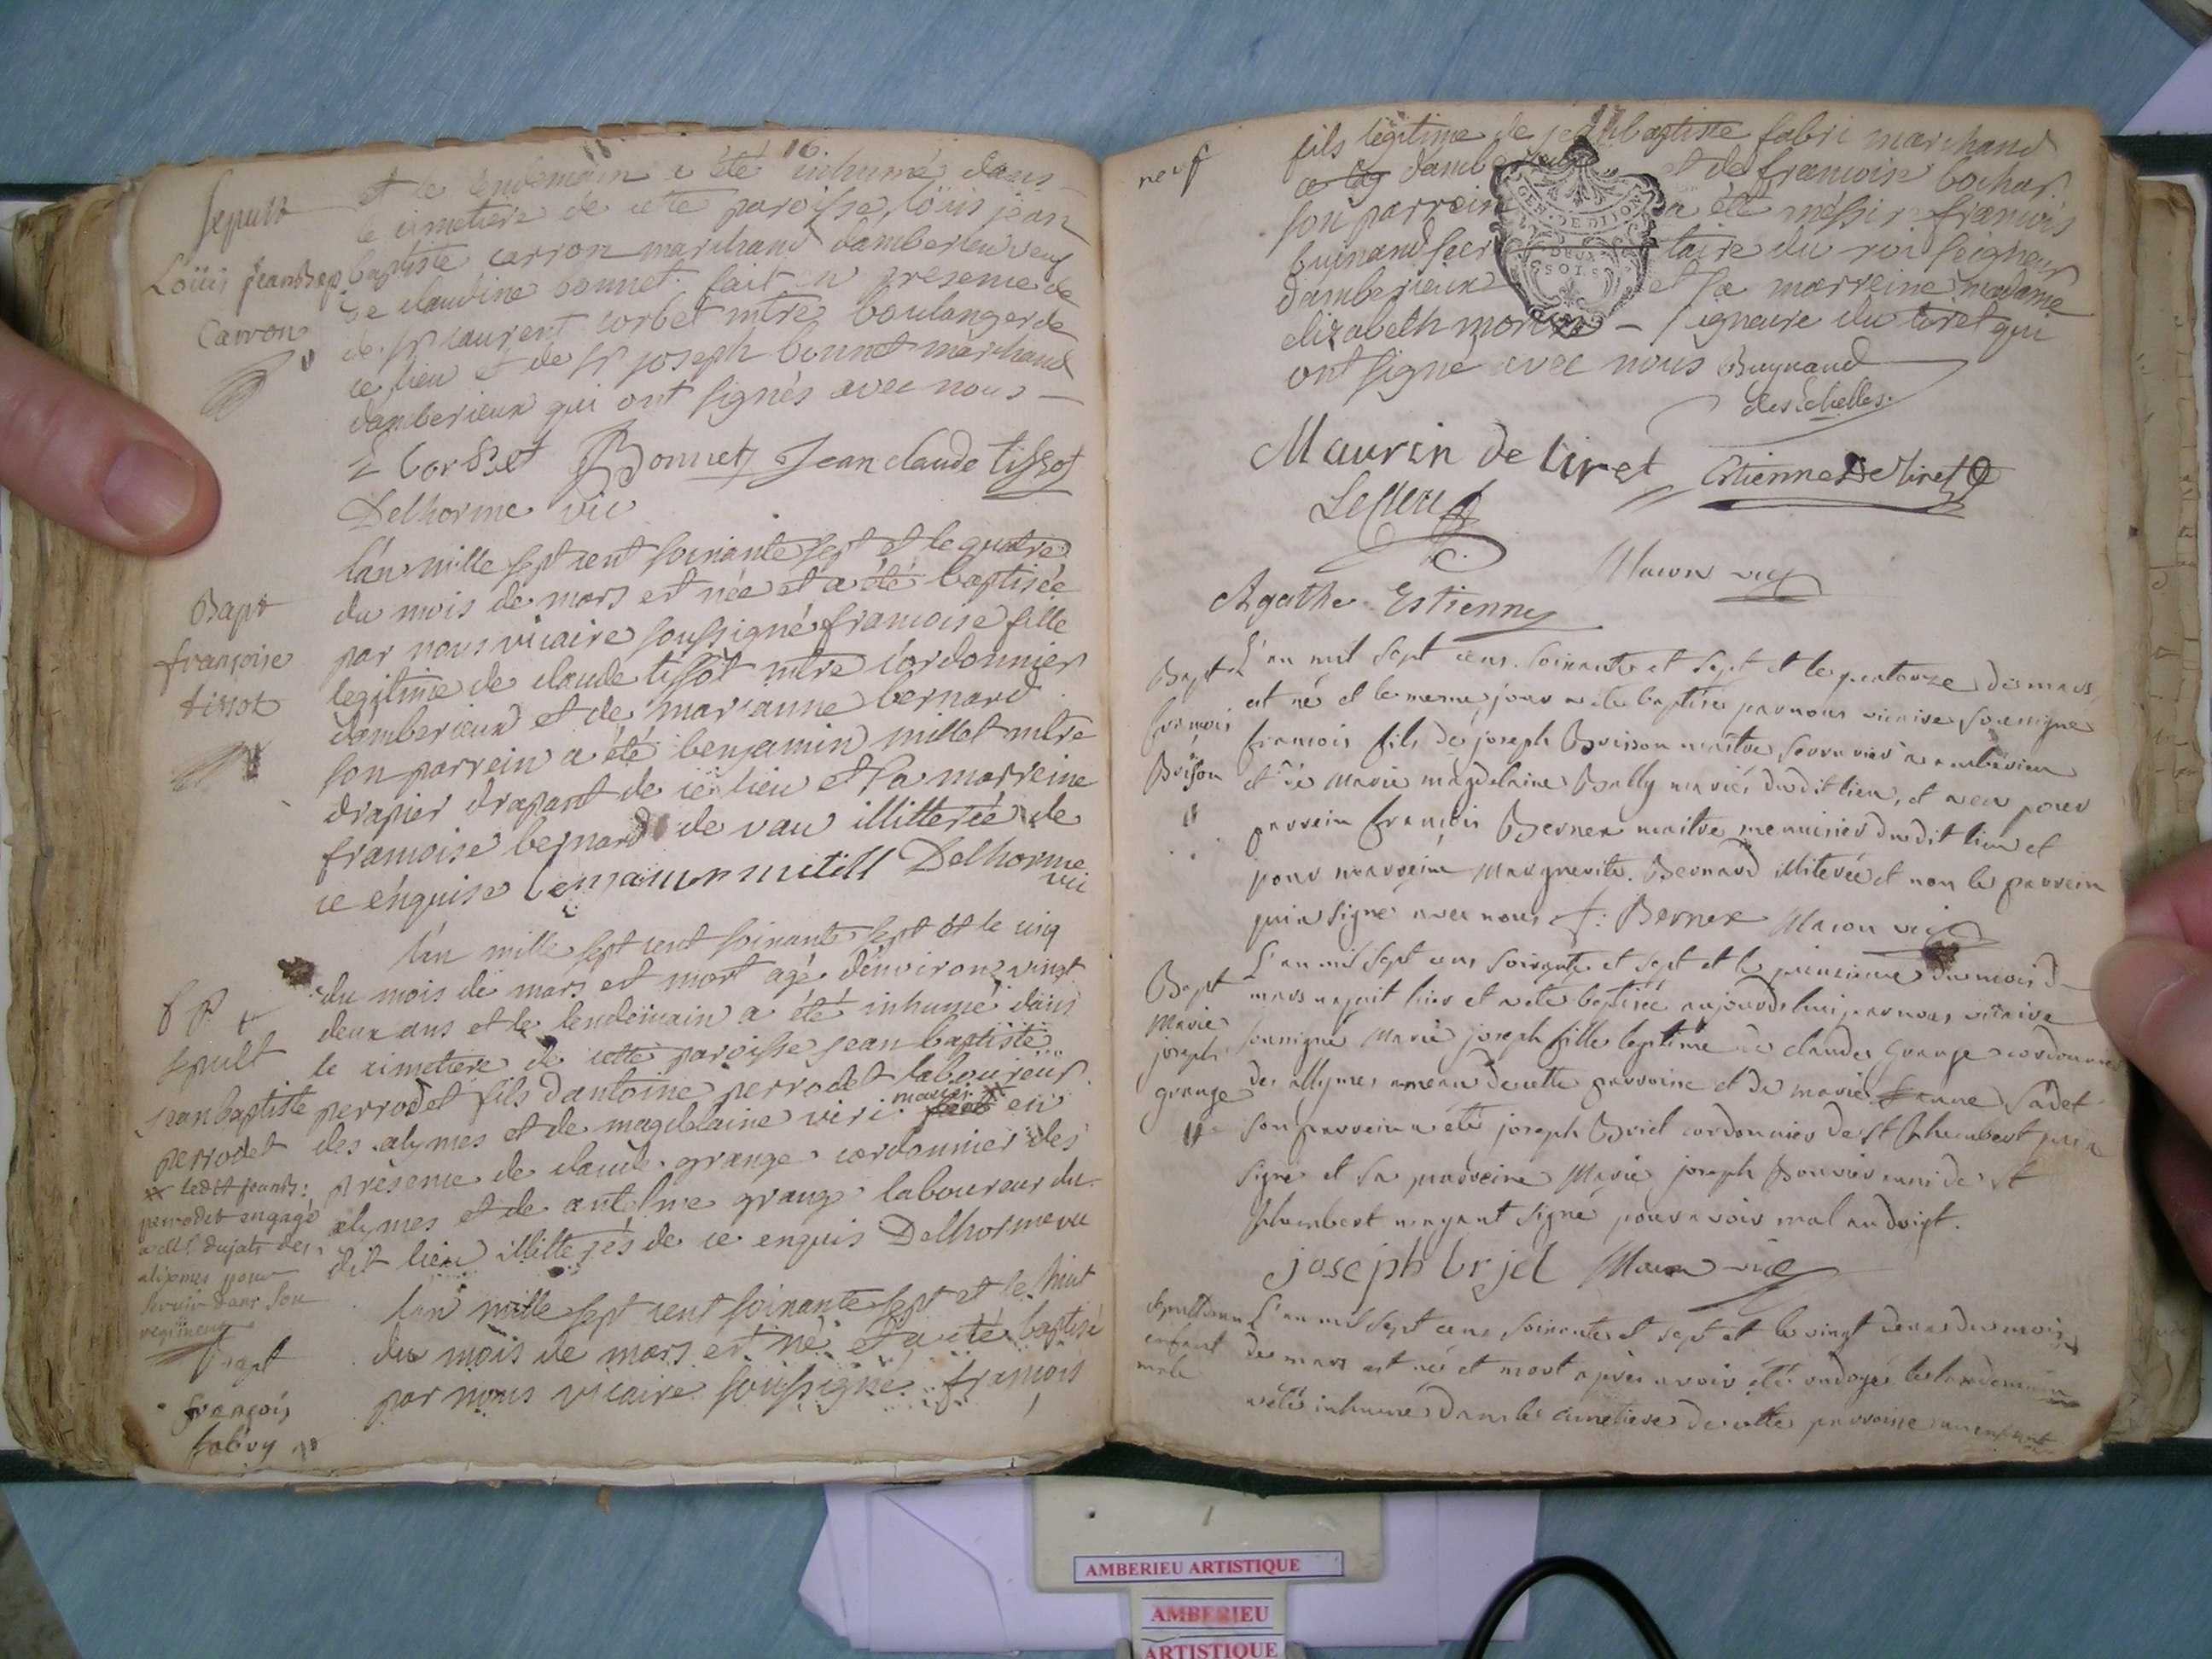 16.
Sepult
Loüis Jeanbap.
Carron
et le lendemain a été inhumé dans
le cimetiere de cete paroisse loüis jean
baptiste carron marchand damberieu veuf
de claudine bonnet fait en presence de
de Sr laurent corbet mtre boulanger de
ce lieu et de Sr joseph bonnet marchand
damberieux qui ont signés avec nous
Bonnet Jean claude tissot
Delhorme vic
Bapt
françoise
tissot
lan mille sept cent soixante sept et le quatre
du mois de mars est née et a été baptisée
par nous vicaire soussigné francoise fille
legitime de claude tissot mtre cordonnier
damberieux et de marianne bernard
son parrein a été benjamin millet mtre
drapier drapant de ce lieu et sa marreine
francoise bernard de vau illitterée de
ce enquise Delhorme
vic
Sepult
jean baptiste
perrodet
ledit jeanb:
perrodet engagé
dujats des
alixmes pour
servir dans son
regiment
lan mille sept cent soixante sept et le cinq
du mois de mars est mort agé d'environ vingt
deux ans et le lendemain a été inhumé dans
le cimetiere de cette paroisse jean baptiste
perrodet fils dantoine perrodet laboureur
des alymes et de magdelaine viri fait en
presence de claude grange cordonnier des
alymes et de antelme grange laboureur du
dit lieu illitterés de ce enquis Delhorme vic
Bapt
françois
fabry
lan mille sept cent soixante sept et le huit
du mois de mars est né et a été baptisé
par nous vicaire soussigné francois
neuf
fils legitime de jean baptiste fabri marchand
et de francoise bochar
son parrein a été messire francois
buinand secretaire du roi seigneur
damberieux et sa marreine madame
elizabeth morin – signeure du tiret qui
ont signé avec nous Buynand
des échelles.
GEN. DE DIJON
DEUX
SOLS
Maurin de tiret Estienne De tiret
Agathe Estienne
Macon vic
Bapt
francois
Brisson
L'an mil sept cens soixante et sept et le quatorze de mars
est né et le meme jour a eté baptisé par nous vicaire soussigné
francois fils de joseph Brisson maitre serrurier a amberieu
et de Marie magdelaine Bally mariés dudit lieu, et a eu pour
parrein françois Berner maitre menuisier dudit lieu et
pour marreine Marguerite Bernard illiterée et non le parrein
qui a signé avec nous f: Berner Macon vic
Bapt
Marie
joseph
grange
L'an mil sept cens soixante et sept et le quinzieme du mois de
mars naquit hier et a eté baptisée aujourdhui par nous vicaire
soussigné Marie joseph fille legitime de claude Grange cordonnier
des allymes ameau de cette parroisse et de marie Sadet
son parrein a été joseph Briel cordonnier de St Rhambert qui a
signé et sa marreine Marie joseph Bouvier aussi de St
Rhambert n'ayant signé pour avoir mal au doigt.
joseph brjel Macon vic
Sepult d'un
enfant
male
L'an mil sept cens soixante et sept et le vingt deux du mois
de mars est né et mort apres avoir été ondoyé le lendemain
a été inhumé dans le cimetiere de cette parroisse un enfant
AMBERIEU ARTISTIQUE
AMBERIEU
ARTISTIQUE